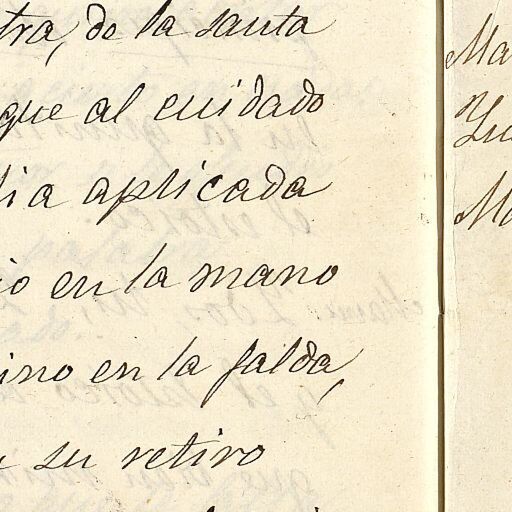 tra, do la santa
que al cuidado
lia aplicada
io en la mano
ino en la falda,
su retiro
Ma
Yu
Ma